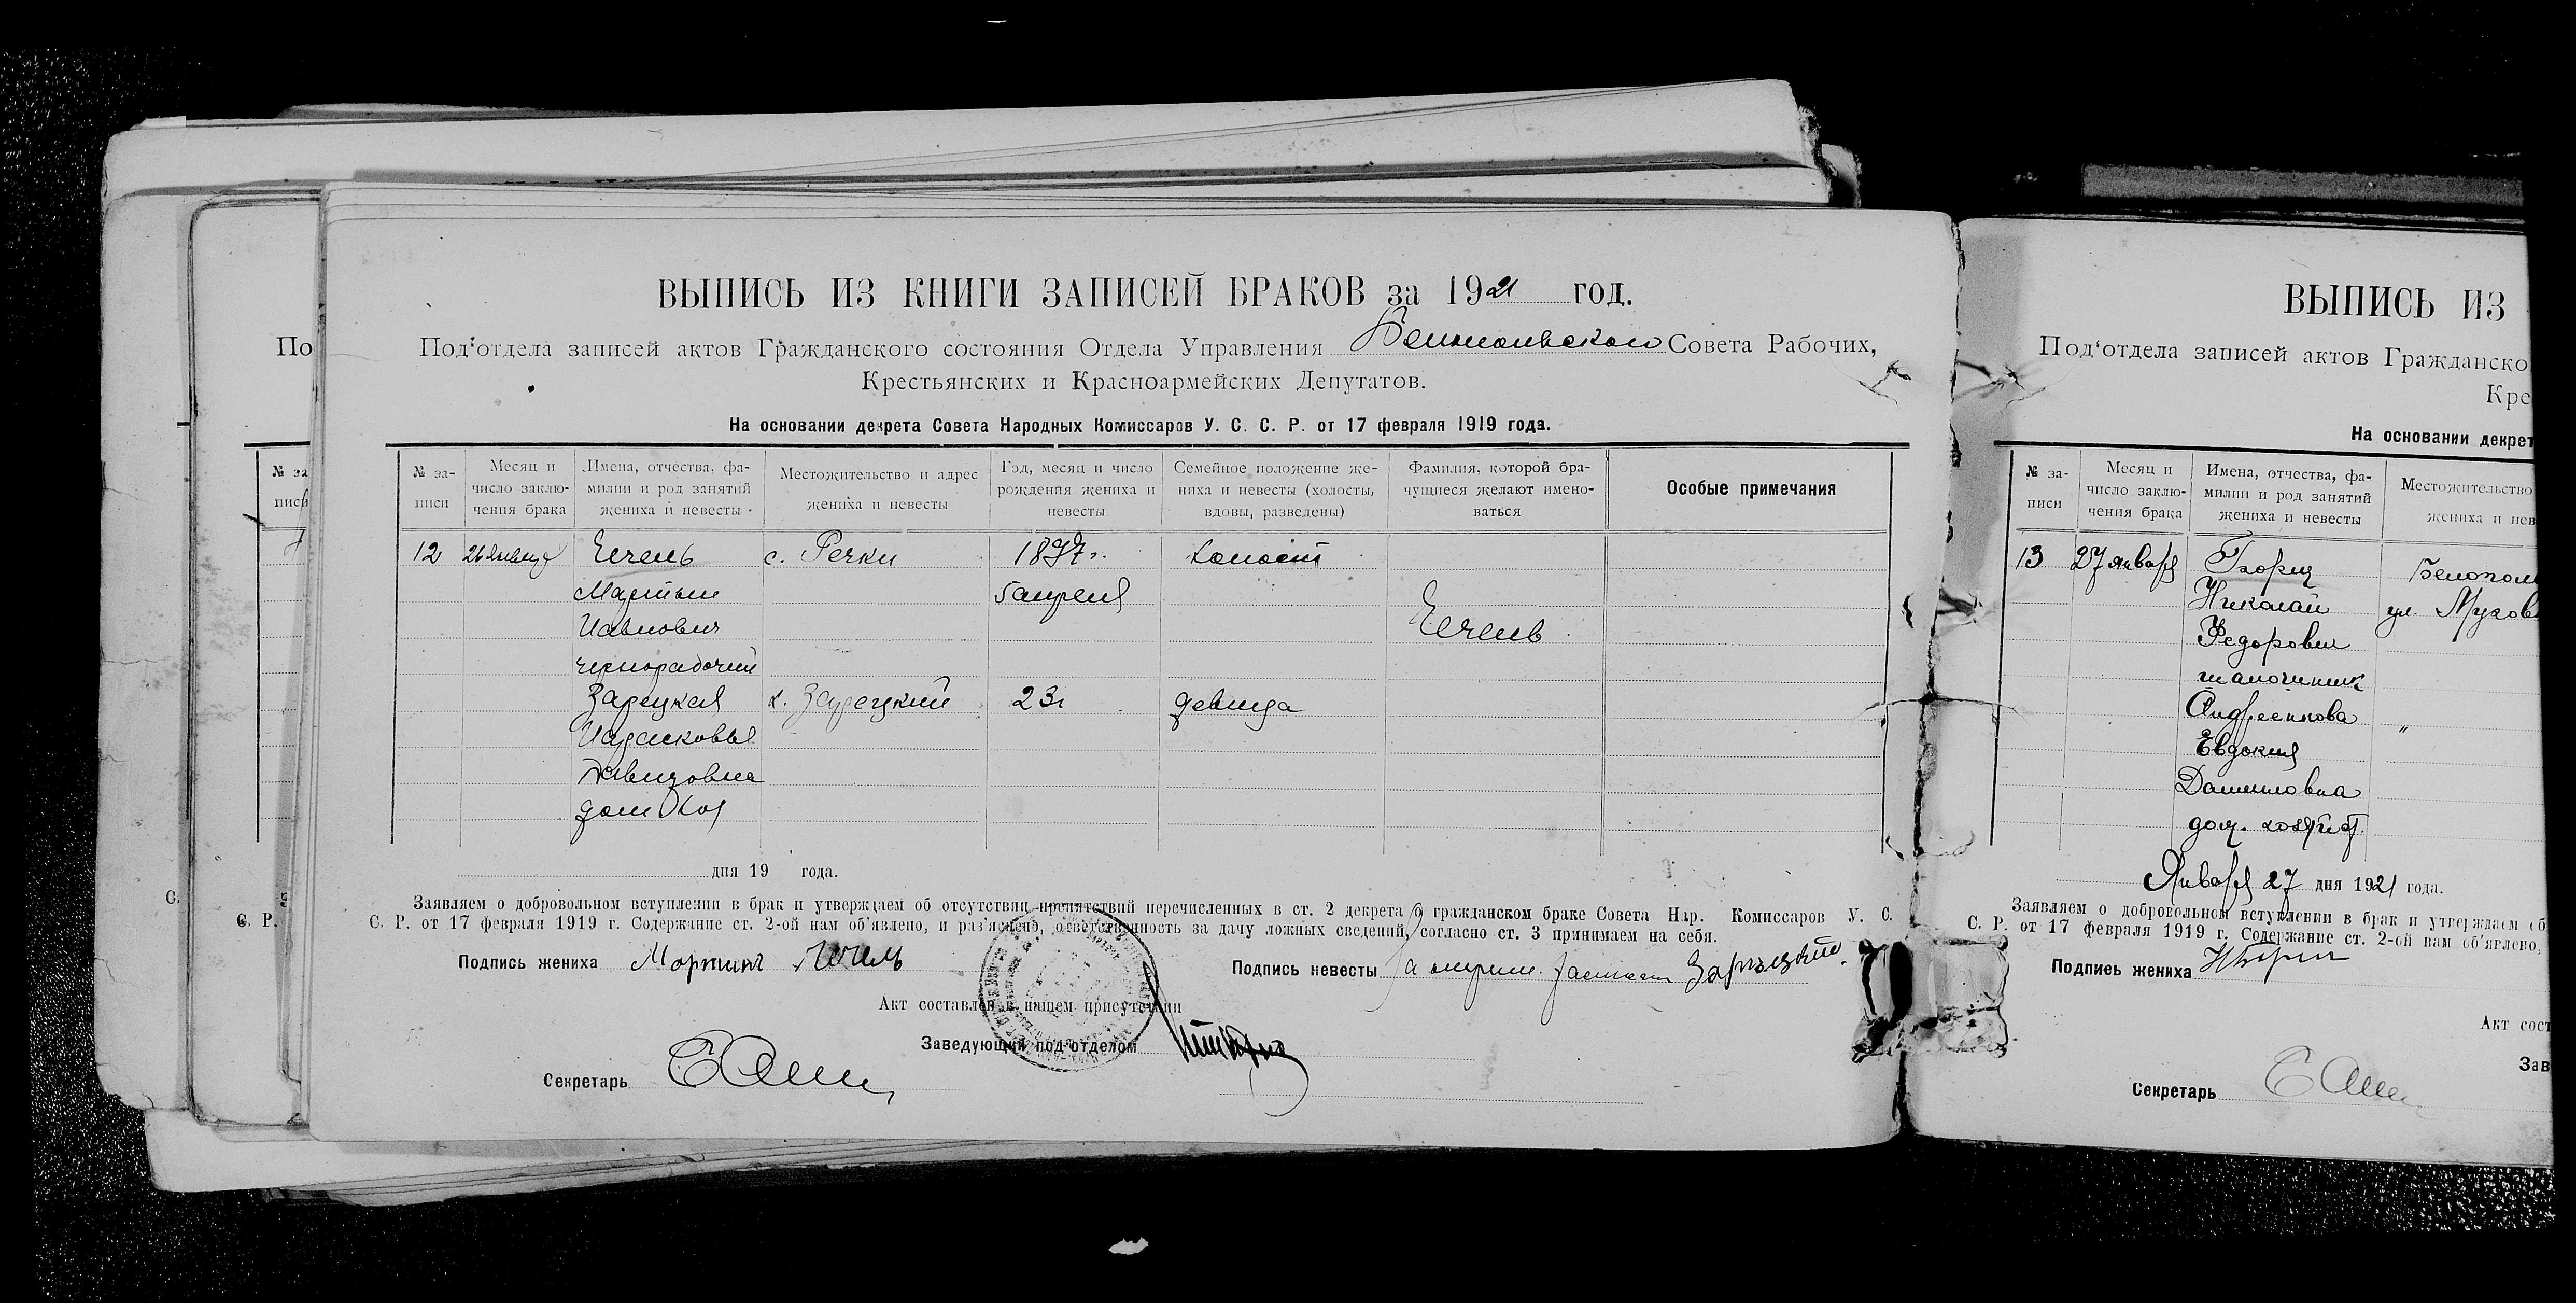 ВЫПИСЬ ИЗ КНИГИ ЗАПИСЕЙ БРАКОВ за 1921 год.
Под‘отдела записей актов Гражданского состояния Отдела Управления Совета Рабочих,
Крестьянских и Красноармейских Депутатов.
На основании декрета Совета Народных Комиссаров У. С. С. Р. от 17 февраля 1919 года.
№ за-
писи
Месяц и
число заклю-
чения брака
Имена, отчества, фа-
милии и род занятий
жениха и невесты
Местожительство и адрес
жениха и невесты
Год, месяц и число
рождения жениха и
невесты
Семейное положение же-
ниха и невесты (холосты,
вдовы, разведены)
Фамилия, которой бра-
чущиеся желают имено-
ваться
Особые примечания
12 26 января с. Речки 1897г. холост
Мартын 5 апреля
чернорабочий
Зарецкая х. Зарецкий 23г девица
Давидовна
дня 19 года.
Заявляем о добровольном вступлении в брак и утверждаем об отсутствии препятствий перечисленных в ст. 2 декрета о гражданском браке Совета Нар. Комиссаров У. С.
С. Р. от 17 февраля 1919 г. Содержание ст. 2-ой нам об‘явлено, и раз‘яснено, ответственность за дачу ложных сведений, согласно ст. 3 принимаем на себя.
Подпись жениха
Подпись невесты
Акт составлен в нашем присутствии
Заведующий под‘отделом
Секретарь
По
№ за
писи
С. Р.
ВЫПИСЬ ИЗ
Под‘отдела записей актов Гражданско
Кре
На основании декрет
№ за-
писи
Месяц и
число заклю-
чения брака
Имена, отчества, фа-
милии и род занятий
жениха и невесты
Местожительство
жениха и нев
13 27 января
Николай ул.
Федорович
Евдокия
Данииловна
Января 27 дня 1921 года.
Заявляем о добровольном вступлении в брак и утверждаем об
С. Р. от 17 февраля 1919 г. Содержание ст. 2-ой нам об‘явлено,
Подпись жениха
Акт сост
Зав
Секретарь